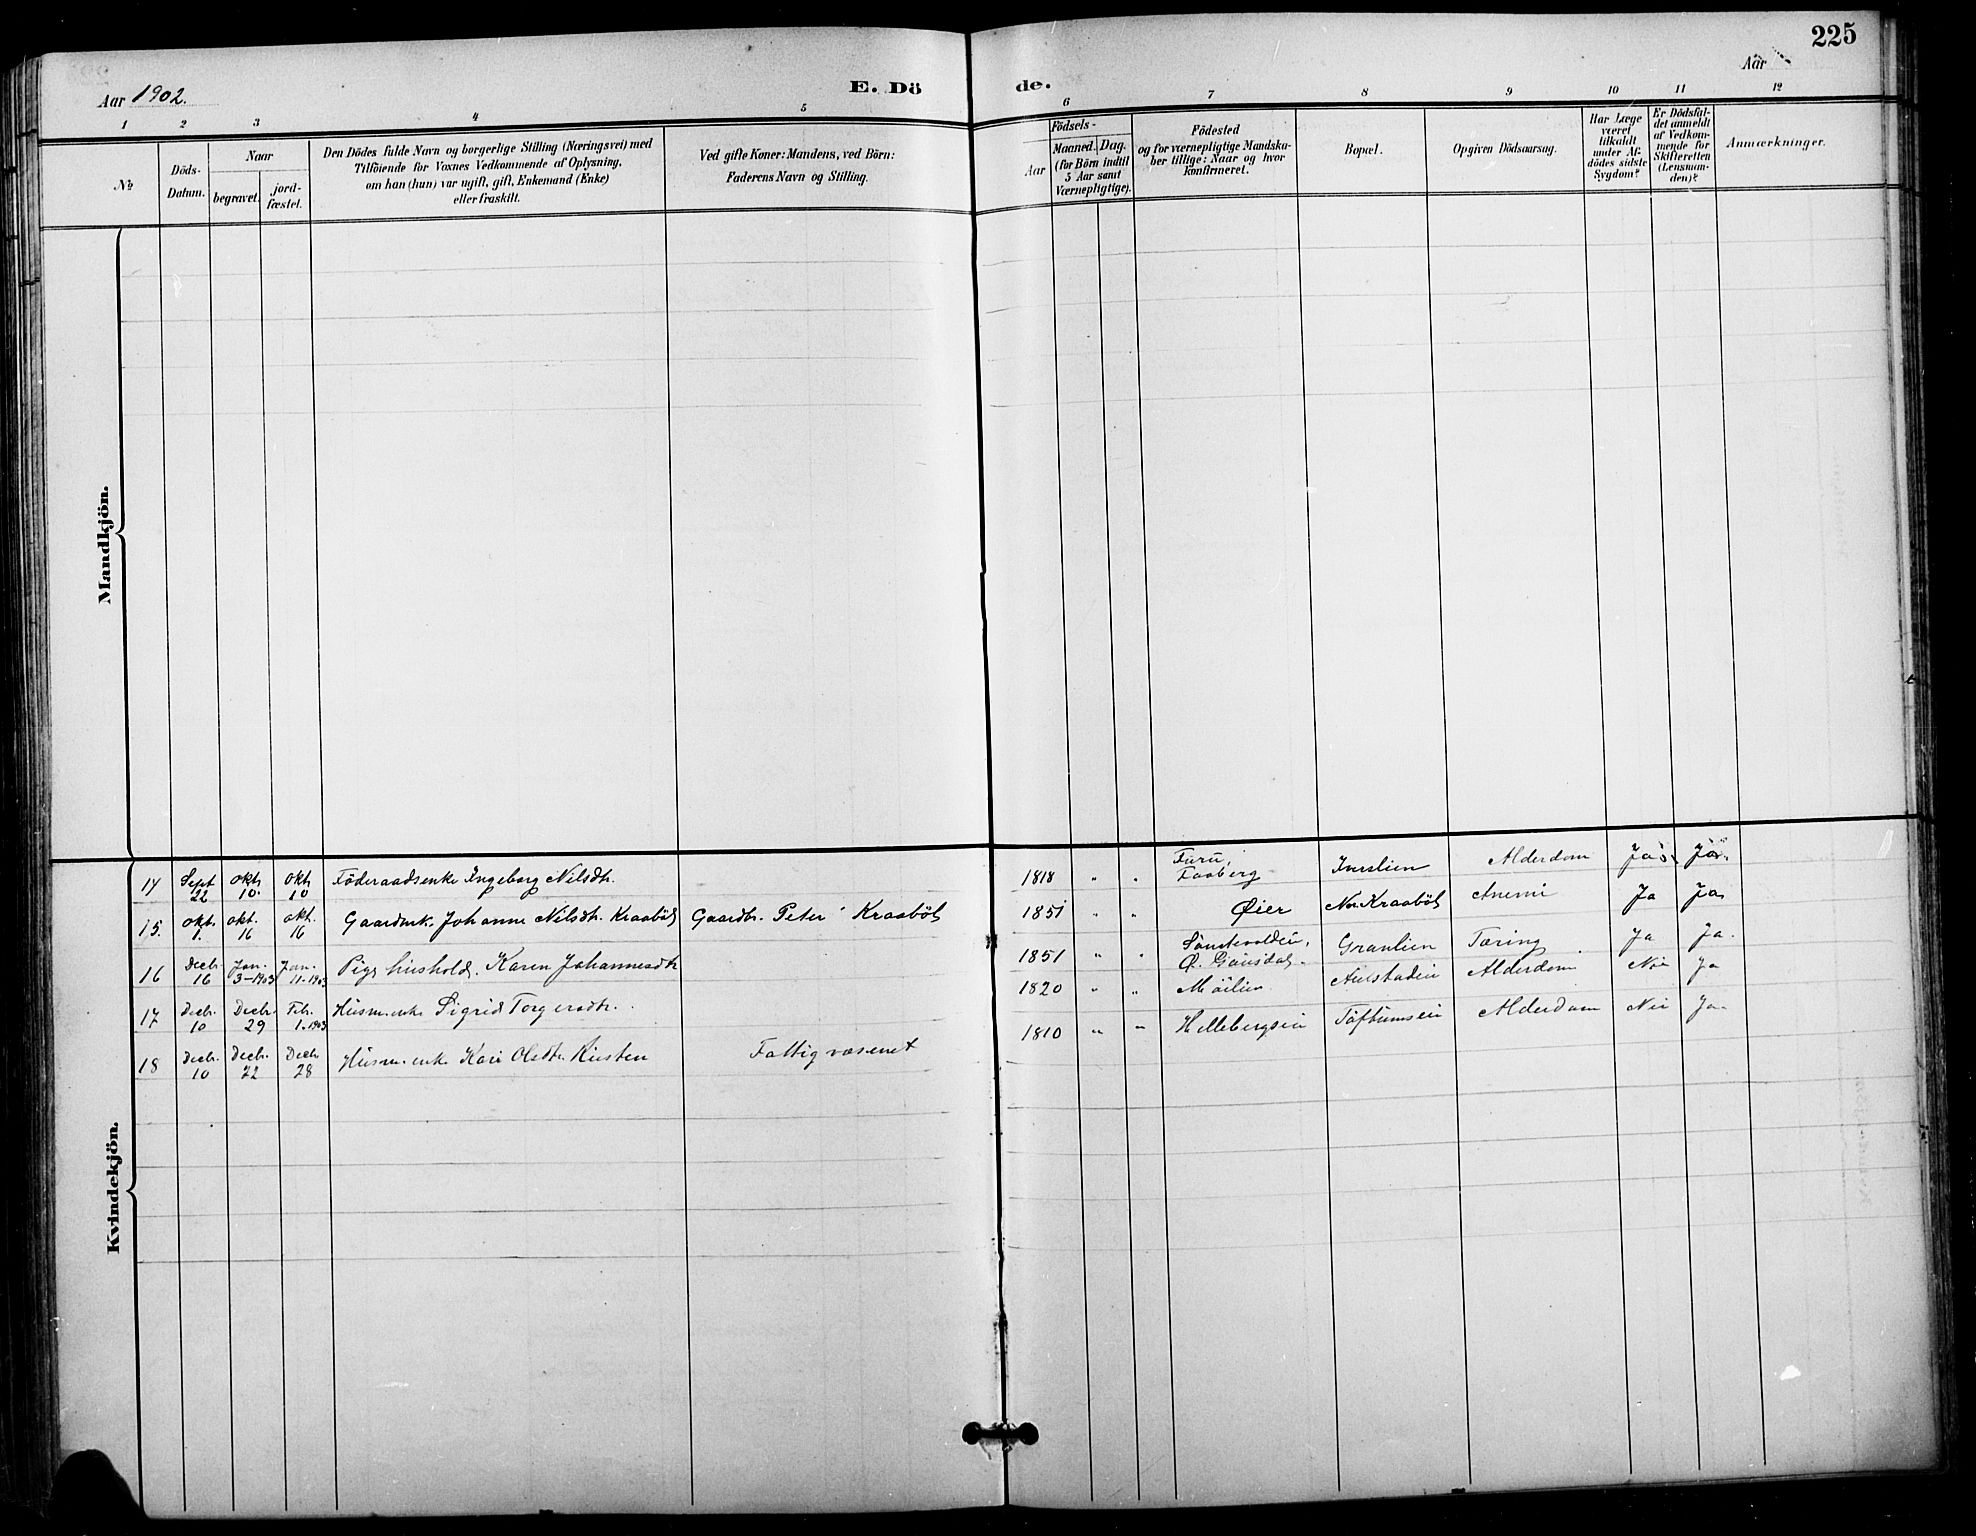 225
Aar 1902.
E. Dö
de.
Aar
1 2 3 4 5 6 7 8 9 10 11 12
No
Döds-
Datum.
Naar
begravet.
jord-
fæstet.
Den Dödes fulde Navn og borgerlige Stilling (Næringsvei) med
Tilföiende for Voxnes Vedkommende af Oplysning,
om han (hun) var ugift, gift, Enkemand (Enke)
eller fraskilt.
Ved gifte Koner: Mandens, ved Börn:
Faderens Navn og Stilling.
Födsels-
Aar
Maaned. Dag.
(for Börn indtil
5 Aar samt
Værnepligtige).
Födested
og for værnepligtige Mandska-
ber tillige: Naar og hvor
konfirmeret.
Bopæl.
Opgiven Dödsaarsag.
Har Læge
været
tilkaldt
under Af-
dödes sidste
Sygdom?
Er Dödsfal-
det anmeldt
af Vedkom-
mende for
Skifteretten
(Lensman-
den)?
Anmærkninger.
Mandkjön.
Kvindekjön.
14 Sept 22 Okt 10 Okt 10 Föderaadsenke Ingeborg Nilsdtr. 1818 " " Furu, Faaberg Alderdom Ja Ja
15. Okt. 1. Okt. 16 Okt. 16 Johanne Nilsdtr. Kraaböl Gaardbr. Peter Kraaböl 1851 " " Øier No. Kraaböl Anemi Ja Ja
16 Decb. 16 Jan. 3-1903 Jan. 11-1903 Pige Karen Johannesdtr 1851 " " Ø. Gausdal. Granlien Tæring Ja Ja.
17 Decbr. 10 Decbr. 29 Febr. 1-1903 Husm. enke Sigrid Torgersdtr. 1820 " " Alderdom Nei Ja
18 Decbr. 10 Decbr. 22 Decb 28 Husm. enke Kari Olsdtr. Fattigvæsenet 1810 " " Alderdom Nei Ja